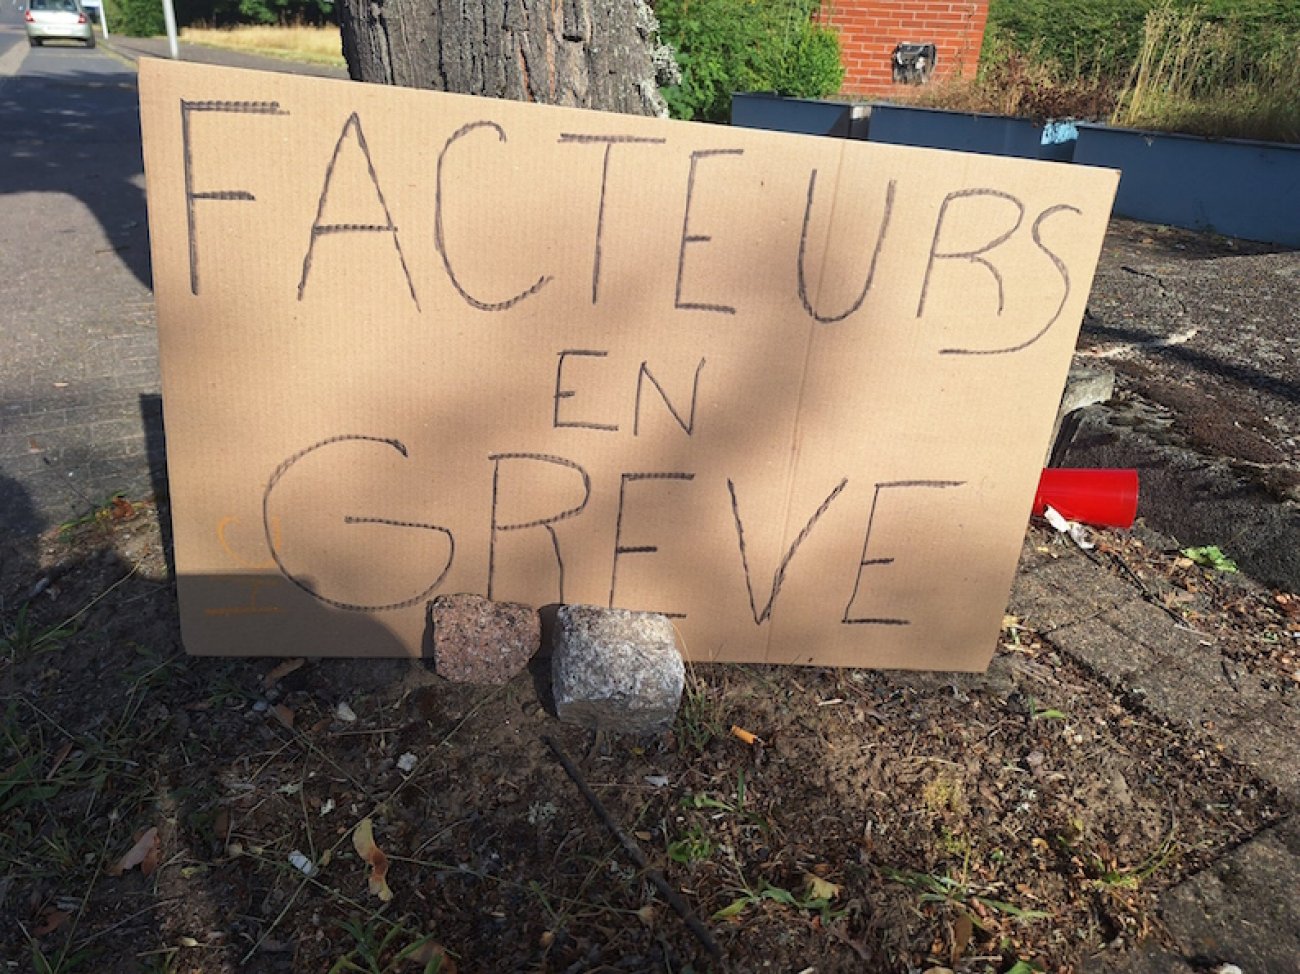 FACTEURS
EN
GREVE